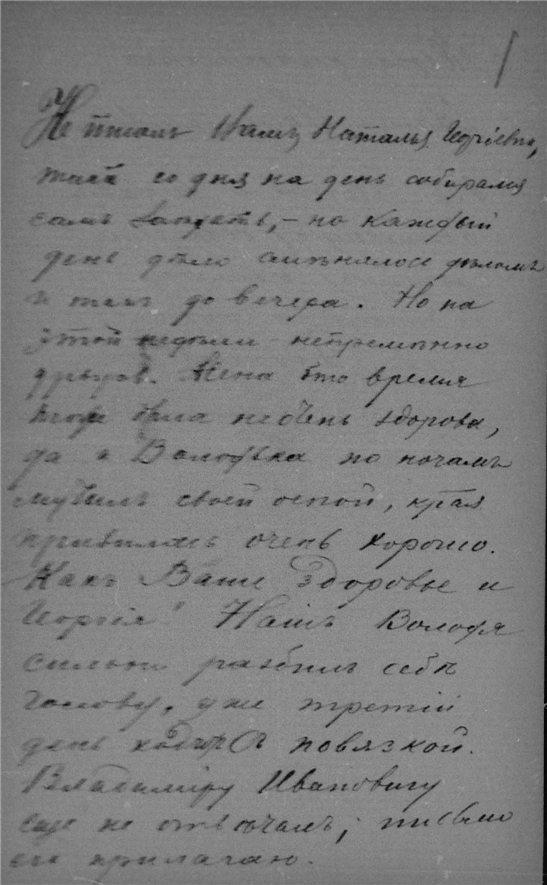 Не писалъ Вамъ, Наталья Георгіевна,
такъ со дня на день собирался
самъ заѣхать, – но каждый
день дѣло смѣнялось дѣломъ
и такъ до вечера. Но на
этой недѣли непремѣнно
Жена это время
тоже была неочень здорова,
да и Володька по ночамъ
мучилъ своей оспой, края
привилась очень хорошо.
Какъ Ваше здоровье и
Георгія? Нашъ Володя
сильно разбилъ себѣ
голову, уже третій
день ходитъ съ повязкой.
Владиміру Ивановичу
еще не отвѣчалъ; письмо
его прилагаю.